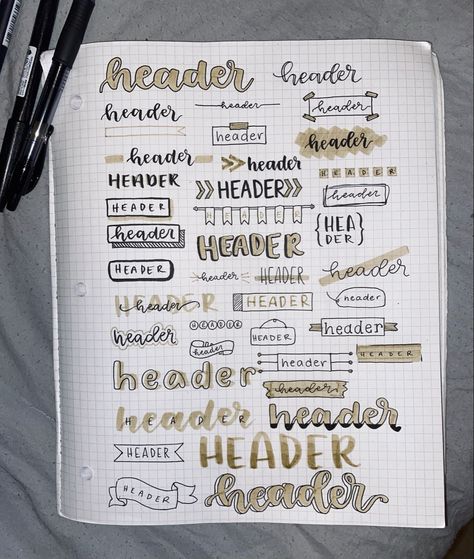 header
header
header
header
header
header
header
header
header
HEADER
HEADER
HEADER
HEADER
HEADER
HEADER
{HEA
DER}
header
HEADER
HEADER
header
HEADER
header
header
HEADER
header
HEADER
header
HEADER
header
HEADER
header
header
HEADER
header
header
header
HEADER
header
HEADER
HEADER
HEADER
header